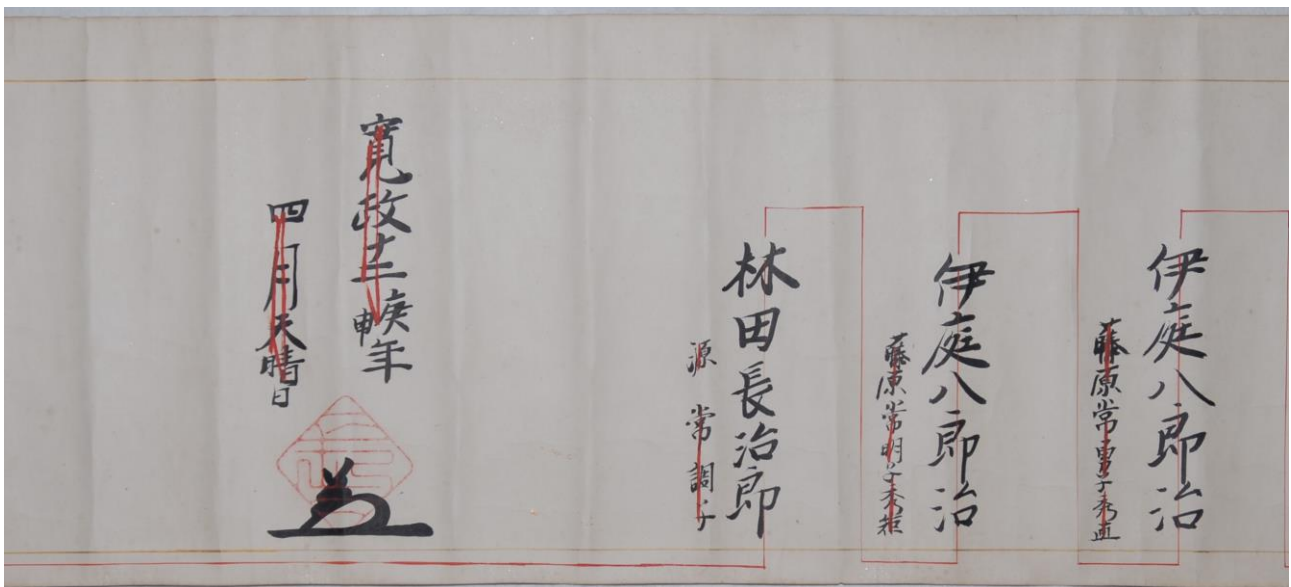 伊庭八郎治
藤原常勇子秀直
伊庭八郎治
藤原常明子秀矩
林田長治郎
源常調子
寛政十二庚申年
四月天晴日